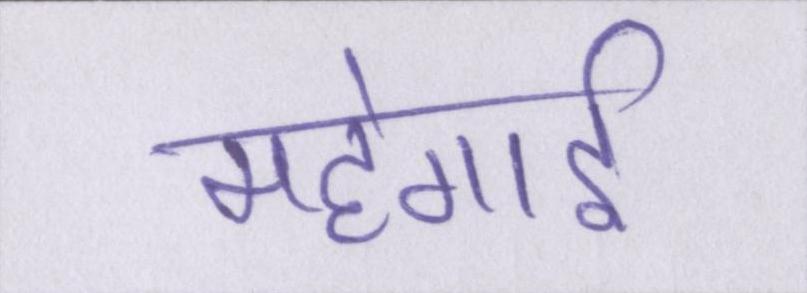 महेगाई